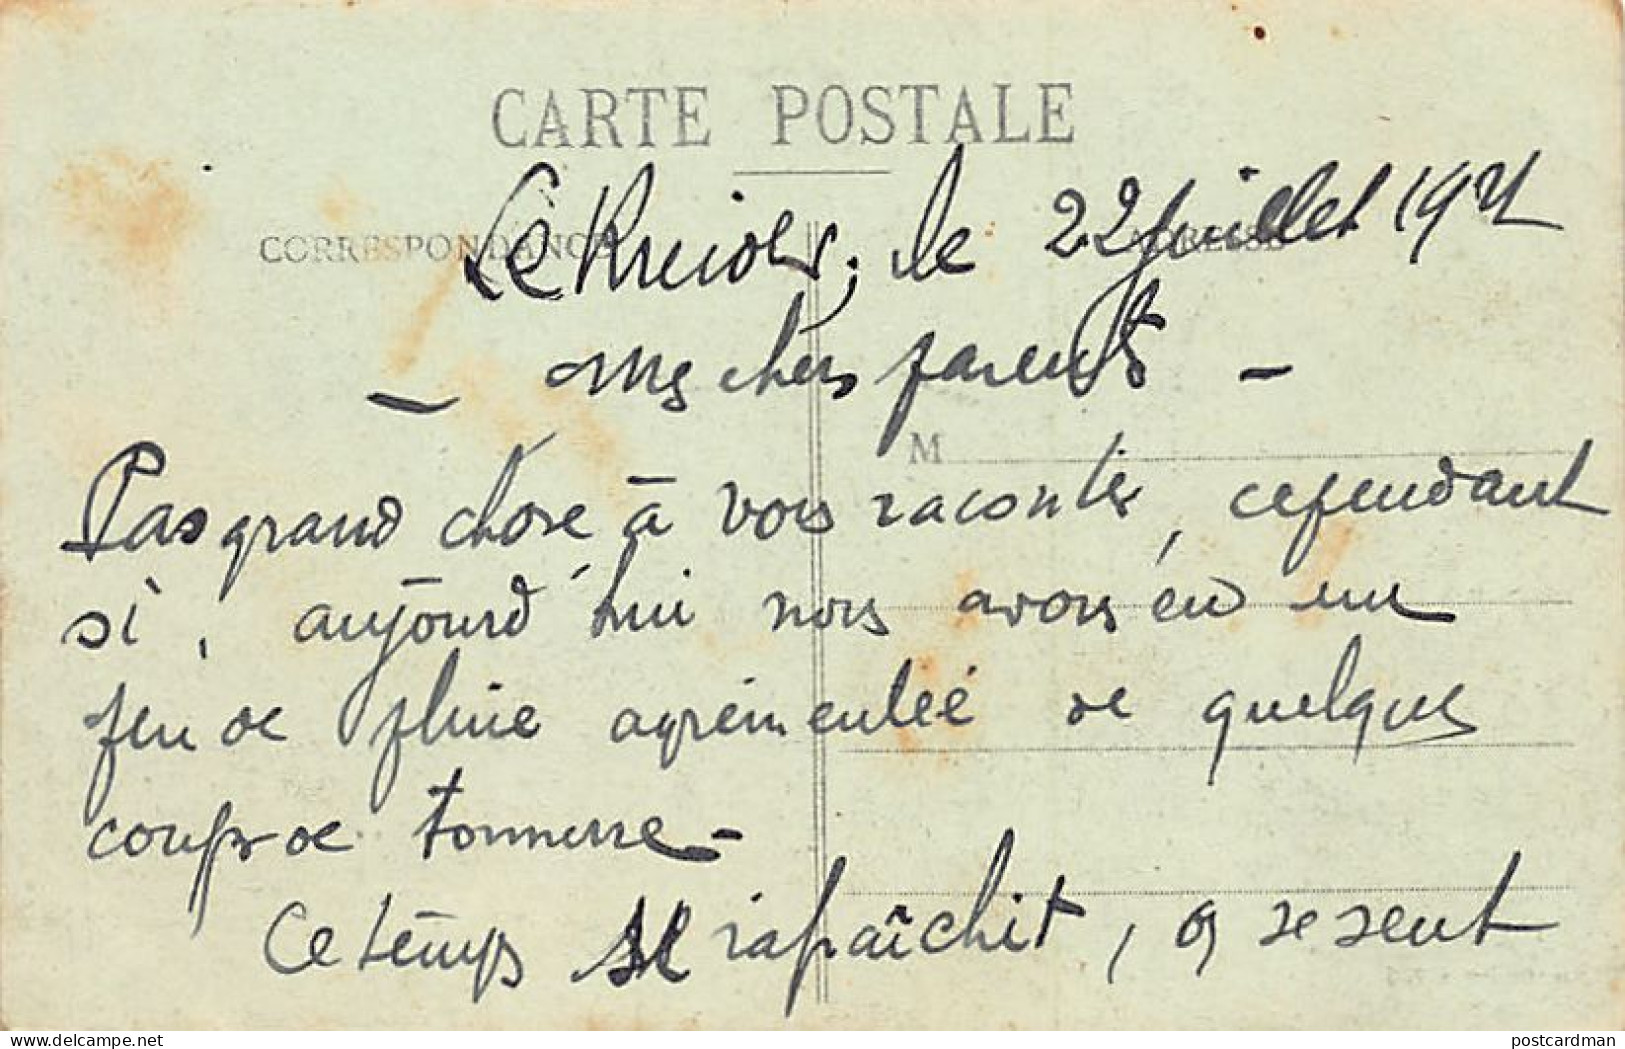 CARTE POSTALE
CORRESPONDANCE
ADRESSE
Le Kreider, le 22 juillet 1921
- Mes chers parents -
M
Pas grand chose à vous raconter, cependant
si, aujourd'hui nous avons eu un
peu de pluie agrémentée de quelques
coups de tonnerre -
Ce temps rafraîchit, on se sent
delcampe.net
postcardman